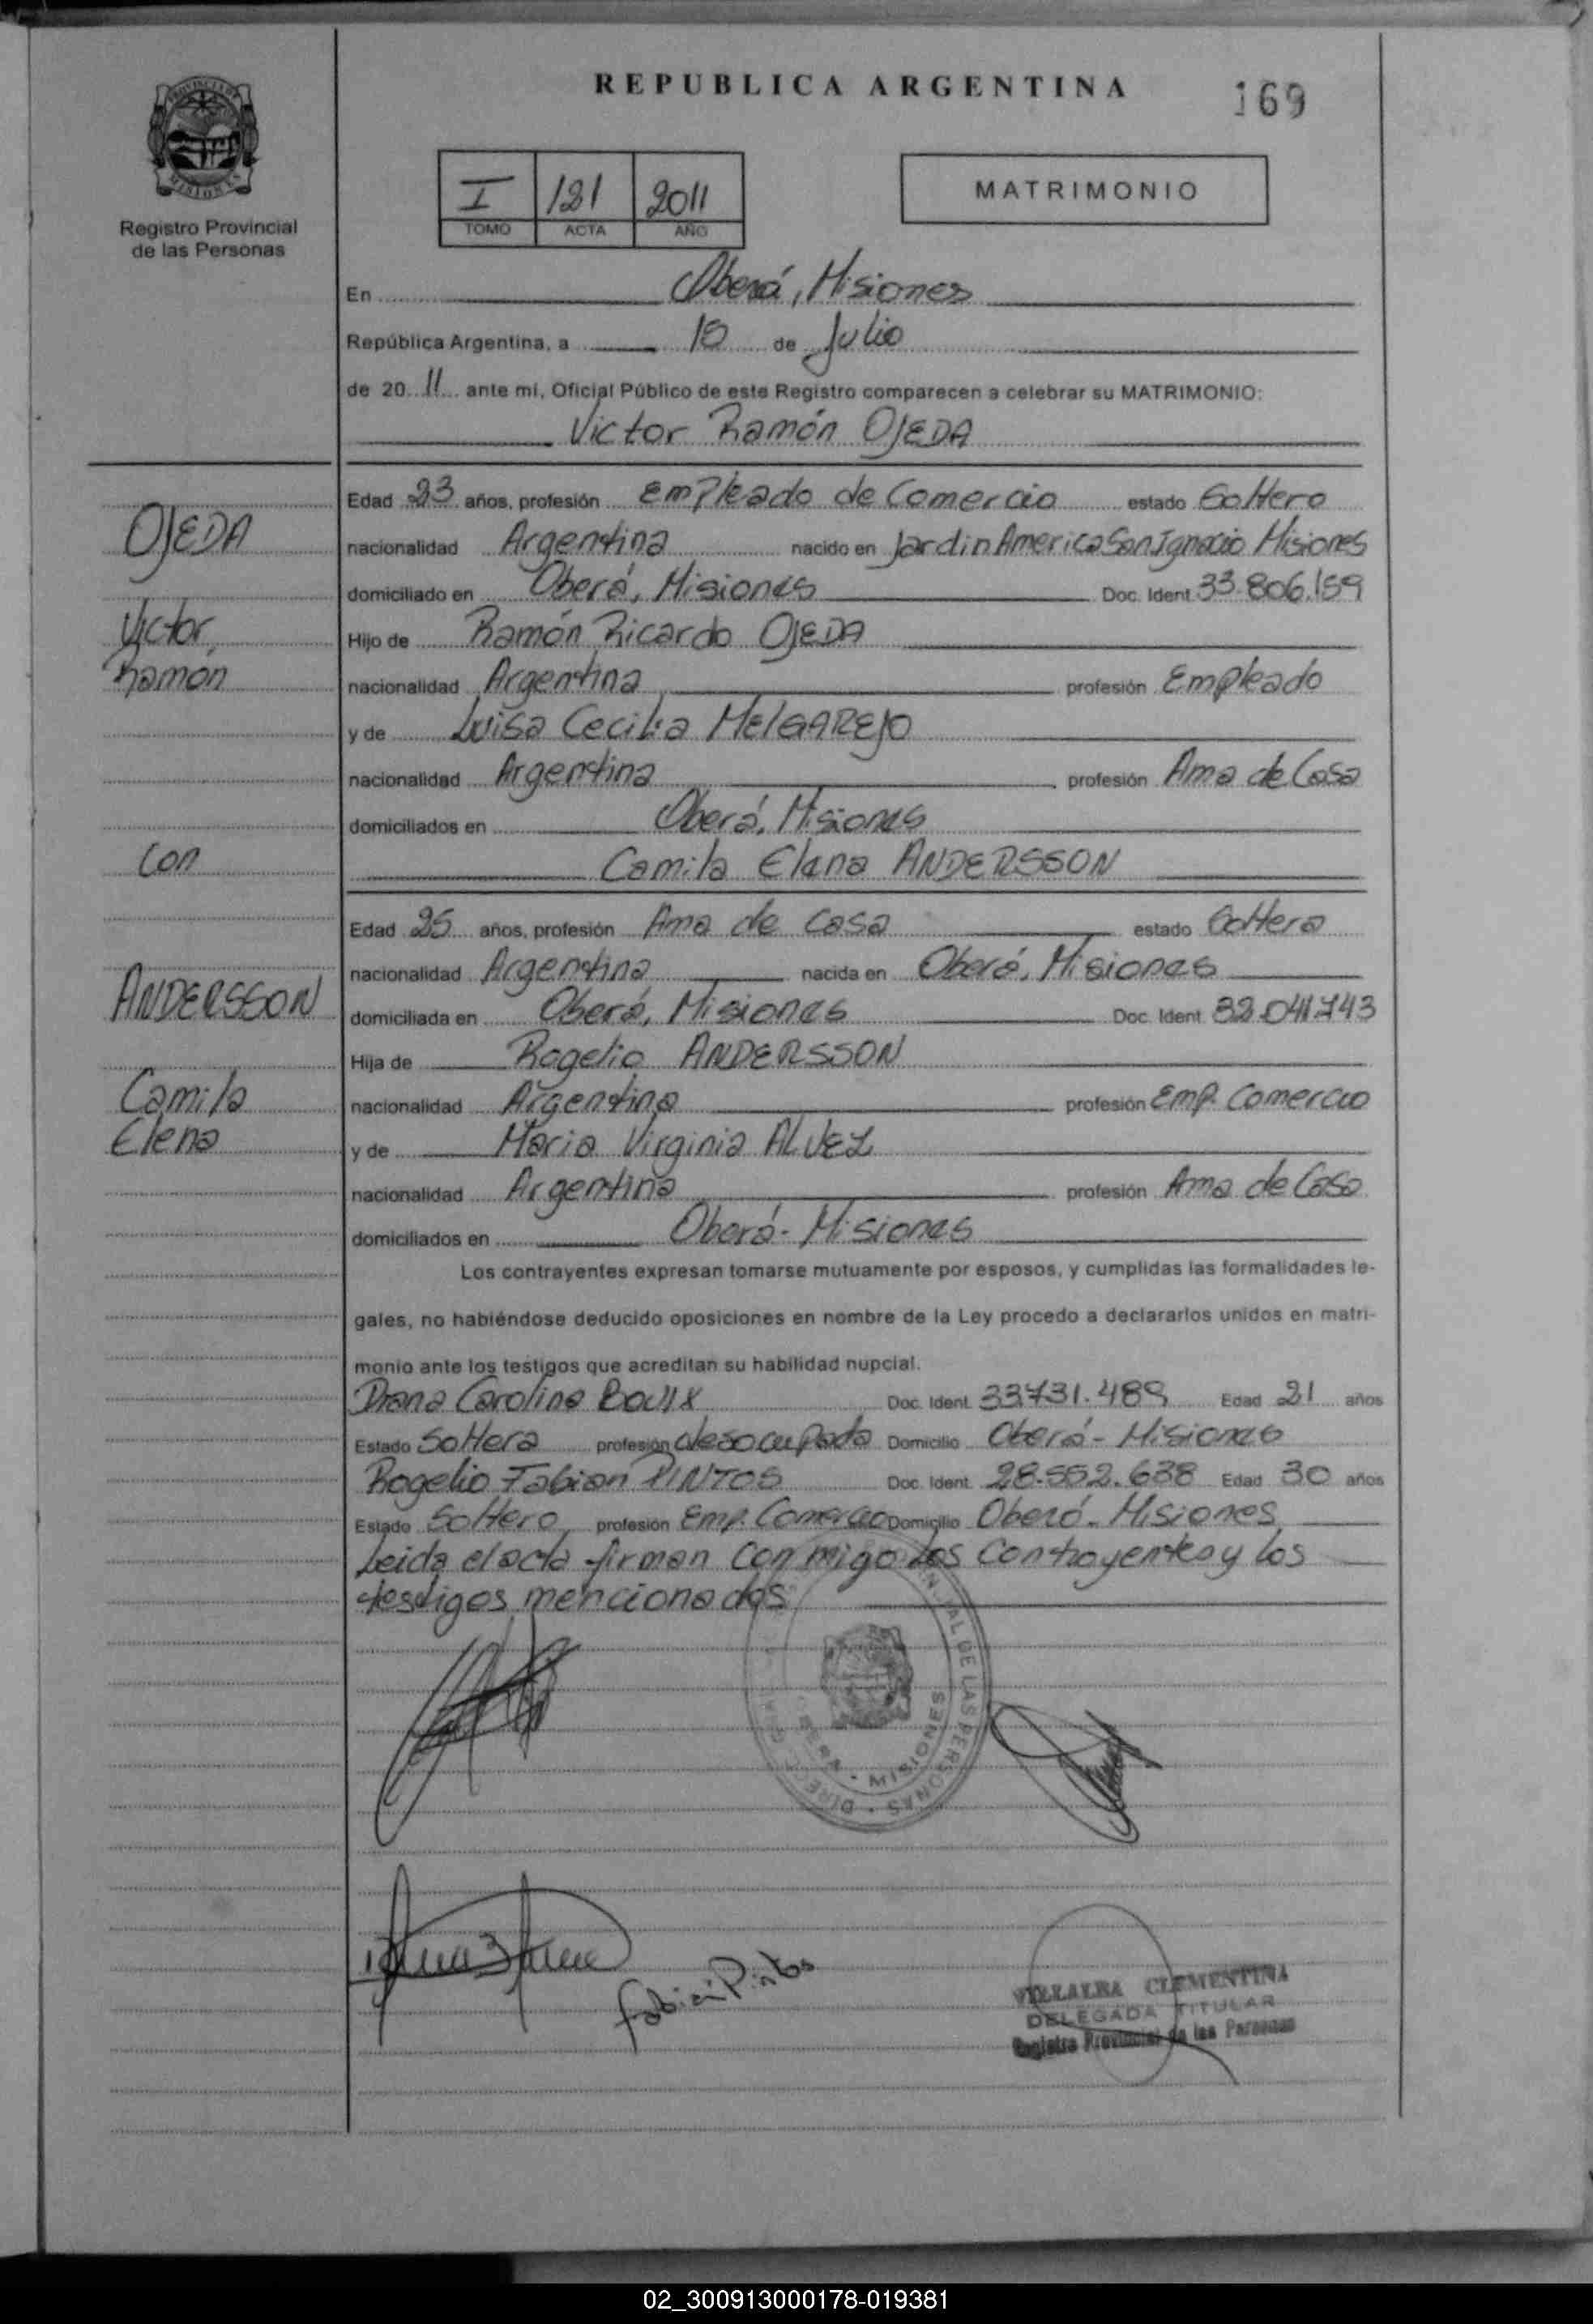 REPUBLICA ARGENTINA
169
PROVINCIA DE MISIONES
Registro Provincial
de las Personas
I 121 2011
TOMO ACTA AÑO
MATRIMONIO
En Oberá, Misiones
República Argentina, a 15 de Julio
de 20 11 ante mi, Oficial Público de este Registro comparecen a celebrar su MATRIMONIO:
Victor Ramón OJEDA
OJEDA
Victor
Ramón
con
ANDERSSON
Camila
Elena
Edad 23 años, profesión Empleado de Comercio estado Soltero
nacionalidad Argentina nacido en Jardin America San Ignacio Misiones
domiciliado en Oberá, Misiones Doc. Ident. 33.806.159
Hijo de Ramón Ricardo OJEDA
nacionalidad Argentina profesión Empleado
y de Luisa Cecilia MELGAREJO
nacionalidad Argentina profesión Ama de Casa
domiciliados en Oberá, Misiones
Camila Elena ANDERSSON
Edad 25 años, profesión Ama de Casa estado Soltera
nacionalidad Argentina nacida en Oberá, Misiones
domiciliada en Oberá, Misiones Doc. Ident. 32.041.743
Hija de Rogelio ANDERSSON
nacionalidad Argentina profesión Emp. Comercio
y de Maria Virginia ALVEZ
nacionalidad Argentina profesión Ama de Casa
domiciliados en Oberá - Misiones
Los contrayentes expresan tomarse mutuamente por esposos, y cumplidas las formalidades le-
gales, no habiéndose deducido oposiciones en nombre de la Ley procedo a declararlos unidos en matri-
monio ante los testigos que acreditan su habilidad nupcial.
Diana Carolina BOUIX Doc. Ident. 33.731.489 Edad 21 años
Estado Soltera profesión desocupada Domicilio Oberá - Misiones
Rogelio Fabian PINTOS Doc. Ident. 28.552.638 Edad 30 años
Estado Soltero, profesión Emp. Comercio Domicilio Oberá - Misiones
Leida el acta firman conmigo los contrayentes y los
testigos mencionados
DE LAS PERSONAS
MISIONES
Fabian Pintos
VILLALBA CLEMENTINA
DELEGADA TITULAR
Registro Provincial de las Personas
02_300913000178-019381